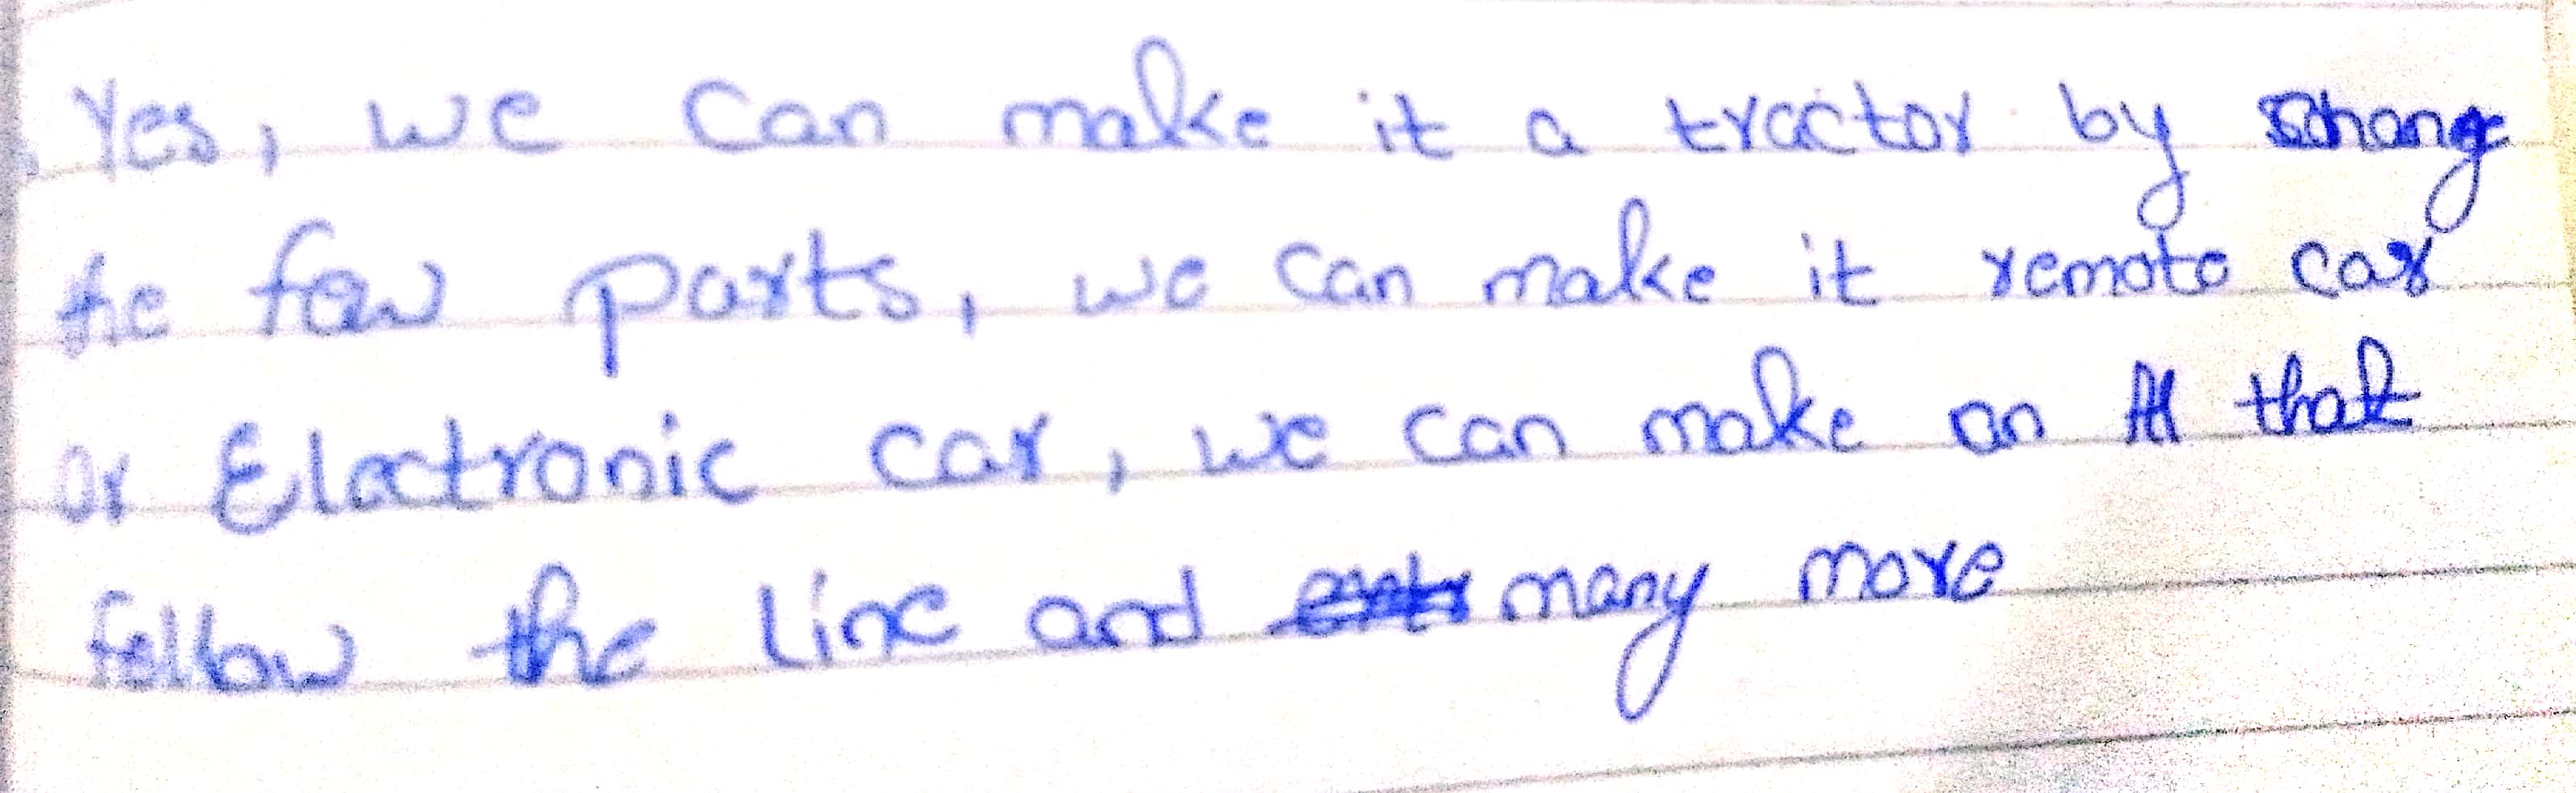 Yes, we can make it a tractor by chang
the few parts, we can make it remote car
Or Electronic car, we can make an AI that
follow the line and many more